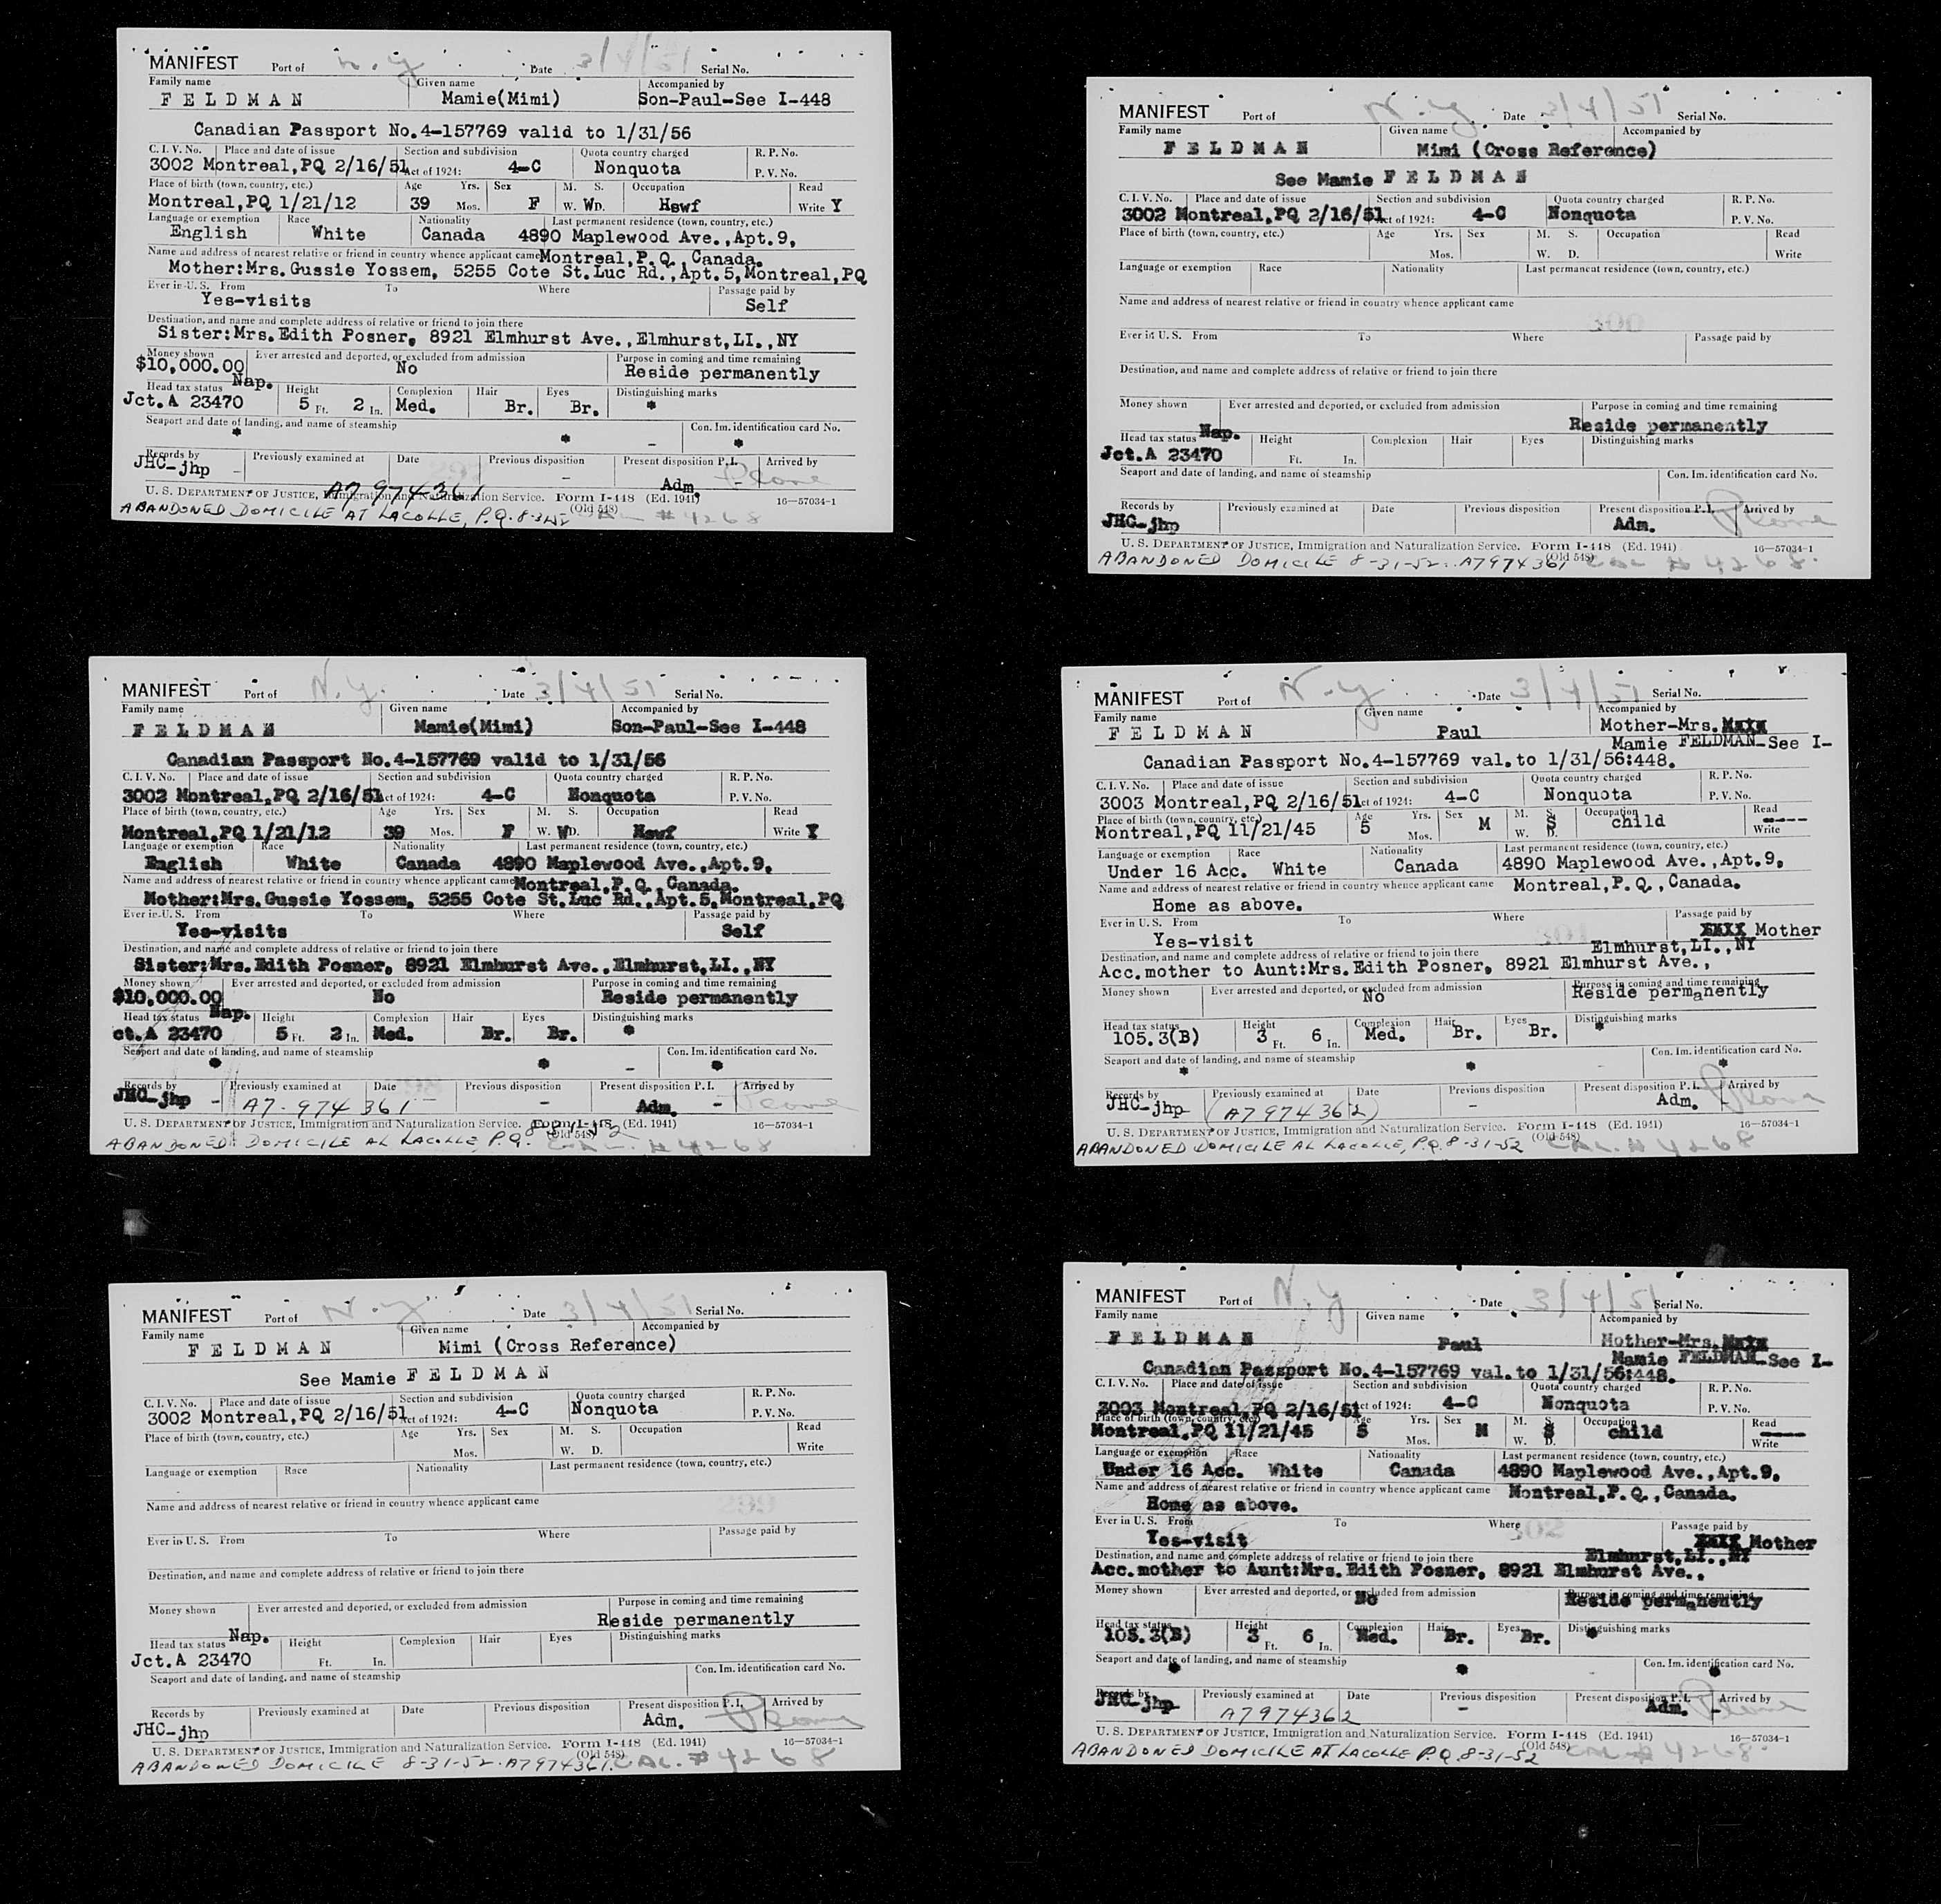 MANIFEST Port of N.Y. Date 3/4/51 Serial No.
Family name Given name Accompanied by
FELDMAN Mamie(Mimi) Son-Paul-See I-448
Canadian Passport No.4-157769 valid to 1/31/56
C. I. V. No. Place and date of issue Section and subdivision Quota country charged R. P. No.
3002 Montreal,PQ 2/16/51 Act of 1924: 4-C Nonquota P. V. No.
Place of birth (town, country, etc.) Age Yrs. Sex M. S. Occupation Read
Montreal,PQ 1/21/12 39 Mos. F W. WD. Hswf Write Y
Language or exemption Race Nationality Last permanent residence (town, country, etc.)
English White Canada 4890 Maplewood Ave.,Apt.9,
Name and address of nearest relative or friend in country whence applicant came Montreal,P.Q., Canada.
Mother:Mrs.Gussie Yossem, 5255 Cote St.Luc Rd.,Apt.5,Montreal,PQ
Ever in U. S. From To Where Passage paid by
Yes-visits Self
Destination, and name and complete address of relative or friend to join there
Sister:Mrs.Edith Posner, 8921 Elmhurst Ave.,Elmhurst,LI.,NY
Money shown Ever arrested and deported, or excluded from admission Purpose in coming and time remaining
$10,000.00 No Reside permanently
Head tax status Nap. Height Complexion Hair Eyes Distinguishing marks
Jct.A 23470 5 Ft. 2 In. Med. Br. Br. *
Seaport and date of landing, and name of steamship Con. Im. identification card No.
* * - *
Records by Previously examined at Date Previous disposition Present disposition P.I. Arrived by
JHC-jhp - - Adm. -
A7974361
U. S. DEPARTMENT OF JUSTICE, Immigration and Naturalization Service. Form I-448 (Ed. 1941) 16—57034-1
(Old 548)
ABANDONED DOMICILE AT LACOLLE, P.Q. 8-31-52 CAL. # 4268
MANIFEST Port of N.Y Date 3/4/51 Serial No.
Family name Given name Accompanied by
FELDMAN Mimi (Cross Reference)
See Mamie FELDMAN
C. I. V. No. Place and date of issue Section and subdivision Quota country charged R. P. No.
3002 Montreal,PQ 2/16/51 Act of 1924: 4-C Nonquota P. V. No.
Place of birth (town, country, etc.) Age Yrs. Sex M. S. Occupation Read
Mos. W. D. Write
Language or exemption Race Nationality Last permanent residence (town, country, etc.)
Name and address of nearest relative or friend in country whence applicant came
300
Ever in U. S. From To Where Passage paid by
Destination, and name and complete address of relative or friend to join there
Money shown Ever arrested and deported, or excluded from admission Purpose in coming and time remaining
Reside permanently
Head tax status Nap. Height Complexion Hair Eyes Distinguishing marks
Jct.A 23470 Ft. In.
Seaport and date of landing, and name of steamship Con. Im. identification card No.
Records by Previously examined at Date Previous disposition Present disposition P.I. Arrived by
JHC-jhp Adm.
U. S. DEPARTMENT OF JUSTICE, Immigration and Naturalization Service. Form I-448 (Ed. 1941) 16—57034-1
(Old 548)
ABANDONED DOMICILE 8-31-52. A7974361 CAL # 4268.
MANIFEST Port of N.Y. Date 3/4/51 Serial No.
Family name Given name Accompanied by
FELDMAN Mamie(Mimi) Son-Paul-See I-448
Canadian Passport No.4-157769 valid to 1/31/56
C. I. V. No. Place and date of issue Section and subdivision Quota country charged R. P. No.
3002 Montreal,PQ 2/16/51 Act of 1924: 4-C Nonquota P. V. No.
Place of birth (town, country, etc.) Age Yrs. Sex M. S. Occupation Read
Montreal,PQ 1/21/12 39 Mos. F W. WD. Hswf Write Y
Language or exemption Race Nationality Last permanent residence (town, country, etc.)
English White Canada 4890 Maplewood Ave.,Apt.9,
Name and address of nearest relative or friend in country whence applicant came Montreal,P.Q., Canada.
Mother:Mrs.Gussie Yossem, 5255 Cote St.Luc Rd.,Apt.5,Montreal,PQ
Ever in U. S. From To Where Passage paid by
Yes-visits Self
Destination, and name and complete address of relative or friend to join there
Sister:Mrs.Edith Posner, 8921 Elmhurst Ave.,Elmhurst,LI.,NY
Money shown Ever arrested and deported, or excluded from admission Purpose in coming and time remaining
$10,000.00 No Reside permanently
Head tax status Nap. Height Complexion Hair Eyes Distinguishing marks
ct.A 23470 5 Ft. 2 In. Med. Br. Br. *
Seaport and date of landing, and name of steamship Con. Im. identification card No.
* * - *
Records by Previously examined at Date Previous disposition Present disposition P.I. Arrived by
JHC-jhp - A7-974361 - Adm. -
U. S. DEPARTMENT OF JUSTICE, Immigration and Naturalization Service. Form I-448 (Ed. 1941) 16—57034-1
(Old 548)
ABANDONED DOMICILE AL LACOLLE, P.Q. 8-31-52 CAL. # 4268
MANIFEST Port of N.Y Date 3/4/51 Serial No.
Family name Given name Accompanied by
FELDMAN Paul Mother-Mrs.
Mamie FELDMAN-See I-
Canadian Passport No.4-157769 val.to 1/31/56:448.
C. I. V. No. Place and date of issue Section and subdivision Quota country charged R. P. No.
3003 Montreal,PQ 2/16/51 Act of 1924: 4-C Nonquota P. V. No.
Place of birth (town, country, etc.) Age Yrs. Sex M. S. Occupation Read
Montreal,PQ 11/21/45 5 Mos. M W. D. S child ---- Write
Language or exemption Race Nationality Last permanent residence (town, country, etc.)
Under 16 Acc. White Canada 4890 Maplewood Ave.,Apt.9,
Name and address of nearest relative or friend in country whence applicant came Montreal,P.Q.,Canada.
Home as above.
Ever in U. S. From To Where Passage paid by
Yes-visit Mother
Elmhurst,LI.,NY
Destination, and name and complete address of relative or friend to join there
Acc.mother to Aunt:Mrs.Edith Posner, 8921 Elmhurst Ave.,
Money shown Ever arrested and deported, or excluded from admission Purpose in coming and time remaining
No Reside permanently
Head tax status Height Complexion Hair Eyes Distinguishing marks
105.3(B) 3 Ft. 6 In. Med. Br. Br. *
Seaport and date of landing, and name of steamship Con. Im. identification card No.
* * - *
Records by Previously examined at Date Previous disposition Present disposition P.I. Arrived by
JHC-jhp (A7974362) - Adm. -
U. S. DEPARTMENT OF JUSTICE, Immigration and Naturalization Service. Form I-448 (Ed. 1941) 16—57034-1
(Old 548)
ABANDONED DOMICILE AL LACOLLE, P.Q. 8-31-52 CAL. # 4268
MANIFEST Port of N.Y Date 3/4/51 Serial No.
Family name Given name Accompanied by
FELDMAN Mimi (Cross Reference)
See Mamie FELDMAN
C. I. V. No. Place and date of issue Section and subdivision Quota country charged R. P. No.
3002 Montreal,PQ 2/16/51 Act of 1924: 4-C Nonquota P. V. No.
Place of birth (town, country, etc.) Age Yrs. Sex M. S. Occupation Read
Mos. W. D. Write
Language or exemption Race Nationality Last permanent residence (town, country, etc.)
Name and address of nearest relative or friend in country whence applicant came
299
Ever in U. S. From To Where Passage paid by
Destination, and name and complete address of relative or friend to join there
Money shown Ever arrested and deported, or excluded from admission Purpose in coming and time remaining
Reside permanently
Head tax status Nap. Height Complexion Hair Eyes Distinguishing marks
Jct.A 23470 Ft. In.
Seaport and date of landing, and name of steamship Con. Im. identification card No.
Records by Previously examined at Date Previous disposition Present disposition P.I. Arrived by
JHC-jhp Adm.
U. S. DEPARTMENT OF JUSTICE, Immigration and Naturalization Service. Form I-448 (Ed. 1941) 16—57034-1
(Old 548)
ABANDONED DOMICILE 8-31-52. A7974361. CAL. # 4268
MANIFEST Port of N.Y Date 3/4/51 Serial No.
Family name Given name Accompanied by
FELDMAN Paul Mother-Mrs.
Mamie FELDMAN-See I-
Canadian Passport No.4-157769 val.to 1/31/56:448.
C. I. V. No. Place and date of issue Section and subdivision Quota country charged R. P. No.
3003 Montreal,PQ 2/16/51 Act of 1924: 4-C Nonquota P. V. No.
Place of birth (town, country, etc.) Age Yrs. Sex M. S. Occupation Read
Montreal,PQ 11/21/45 5 Mos. M W. D. S child ---- Write
Language or exemption Race Nationality Last permanent residence (town, country, etc.)
Under 16 Acc. White Canada 4890 Maplewood Ave.,Apt.9,
Name and address of nearest relative or friend in country whence applicant came Montreal,P.Q.,Canada.
Home as above.
Ever in U. S. From To Where 302 Passage paid by
Yes-visit Mother
Elmhurst,LI.,NY
Destination, and name and complete address of relative or friend to join there
Acc.mother to Aunt:Mrs.Edith Posner, 8921 Elmhurst Ave.,
Money shown Ever arrested and deported, or excluded from admission Purpose in coming and time remaining
No Reside permanently
Head tax status Height Complexion Hair Eyes Distinguishing marks
105.3(B) 3 Ft. 6 In. Med. Br. Br. *
Seaport and date of landing, and name of steamship Con. Im. identification card No.
* * - *
Records by Previously examined at Date Previous disposition Present disposition P.I. Arrived by
JHC-jhp A7974362 - Adm. -
U. S. DEPARTMENT OF JUSTICE, Immigration and Naturalization Service. Form I-448 (Ed. 1941) 16—57034-1
(Old 548)
ABANDONED DOMICILE AT LACOLLE P.Q. 8-31-52 CAL # 4268